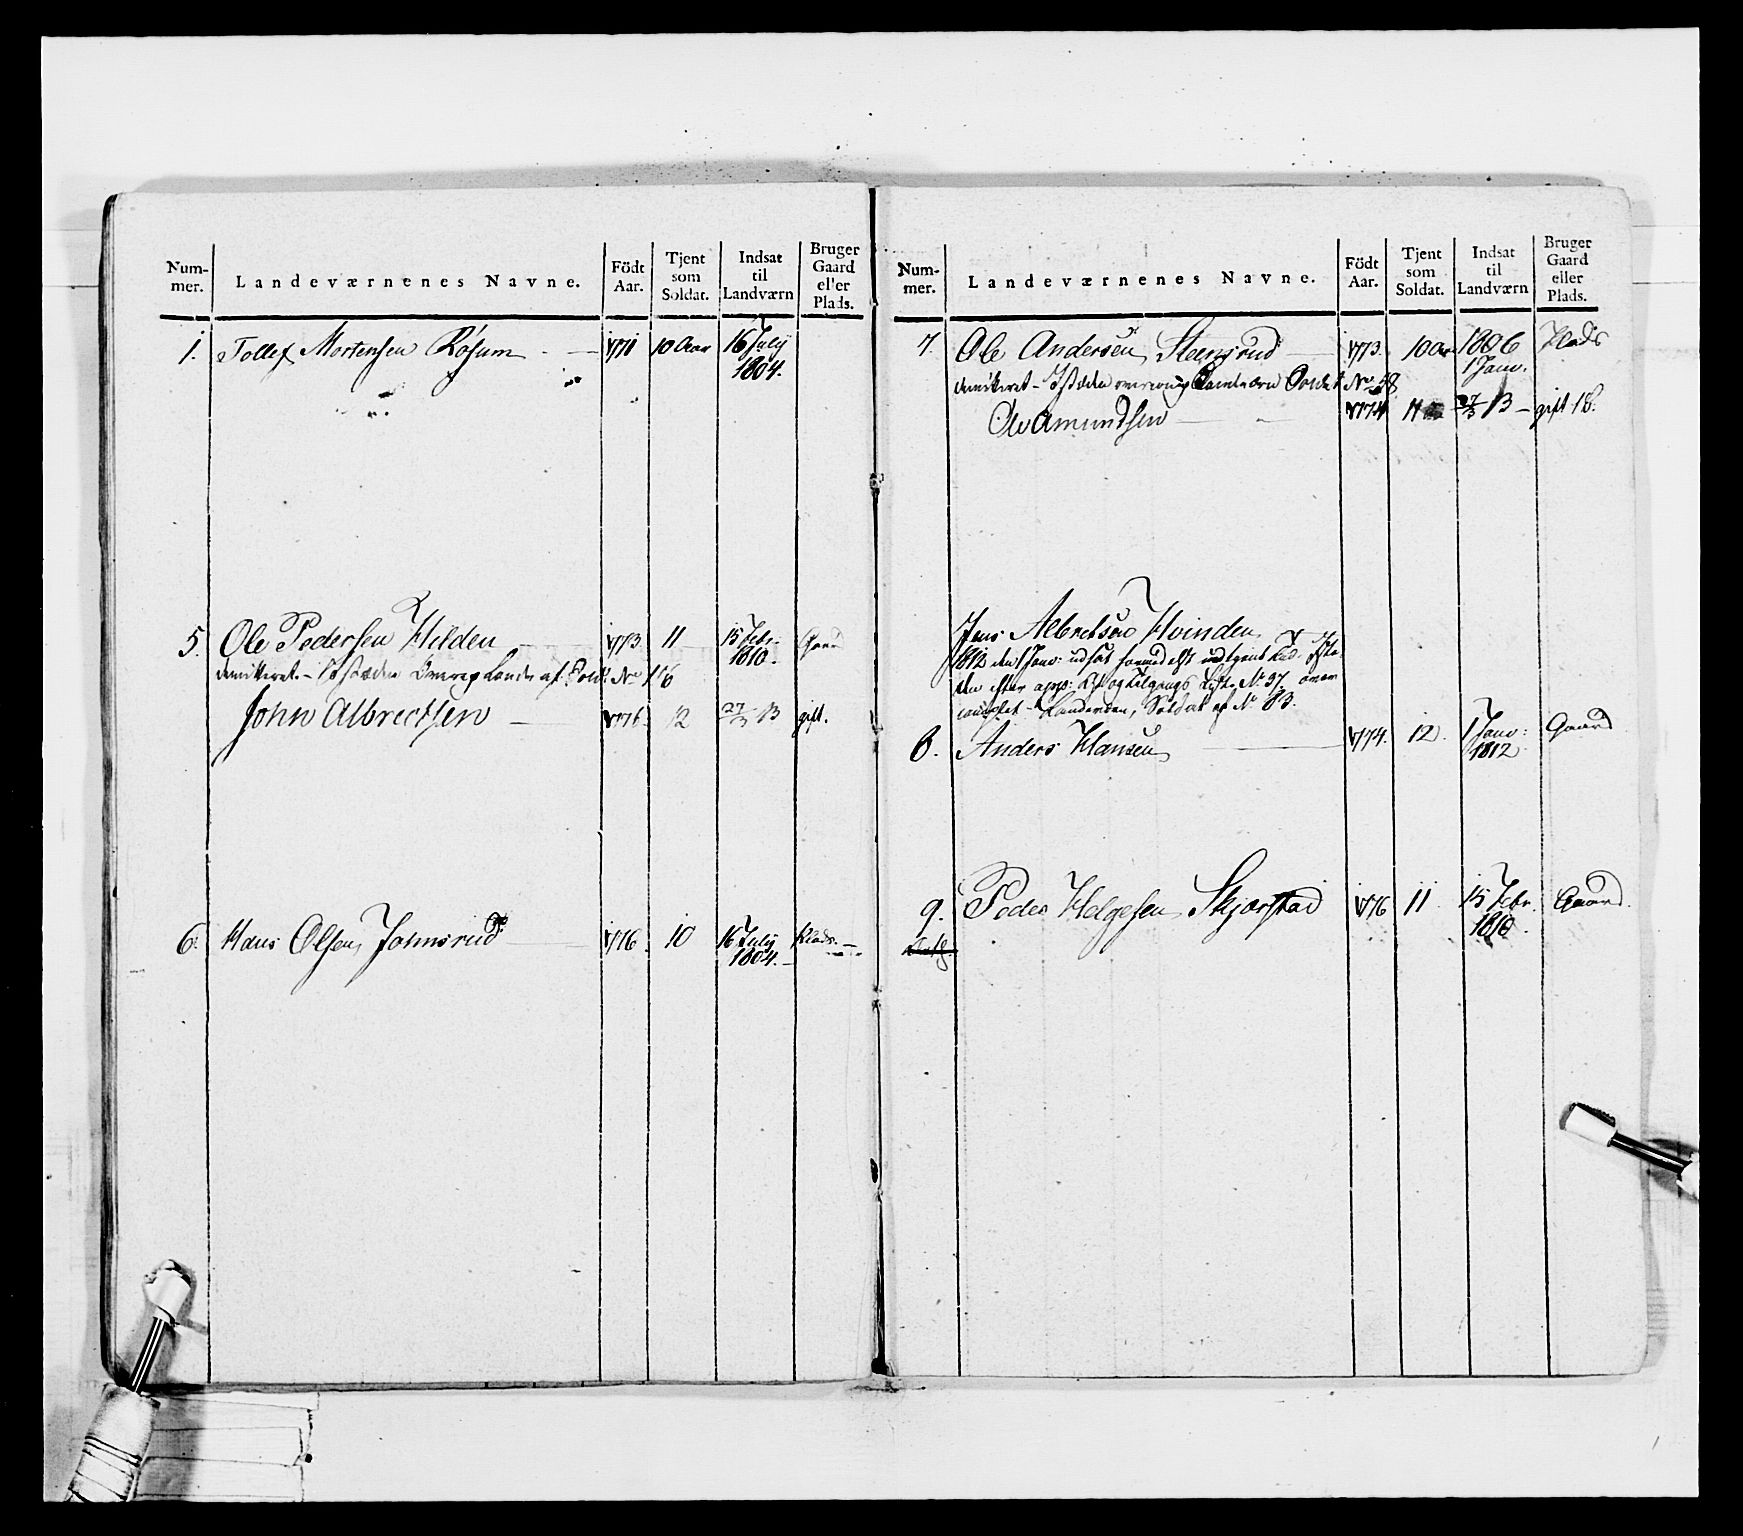 Num-
mer.
Landeværnenes Navne.
Födt
Aar.
Tjent
som
Soldat.
Indsat
til
Landværn
Bruger
Gaard
eller
Plads.
1. Tollef Mortensen Røsum 1771 10 Aar 16 July
1804.
5. Ole Pedersen Hilden 1773. 11 15 Febr:
1810. Gaard
No 116
John Albrechtsen 1776. 12 27/3 13 gift.
6. Hans Olsen Johnsrud 1776. 10 16 July
1804. Plads.
Num-
mer.
Landeværnenes Navne.
Födt
Aar.
Tjent
som
Soldat.
Indsat
til
Landværn
Bruger
Gaard
eller
Plads.
7. Ole Andersen Steensrud 1773. 10 Aar 1806 Plads
1 Janv.
No 58
Ole Amundsen 1774 11 27/3 13 gift 1 B.
Jens Albretsen Hvinden
1812 den 1 Janv: udsat formedelst udtjent Tid
den efter app: Af og Tilgangs Liste No 37
Soldat af No 83.
8. Anders Hansen 1774. 12. 1 Janv:
1812. Gaard
9. Peder Helgesen Skjørstad 1776 11 15 Febr.
1810. Gaard.